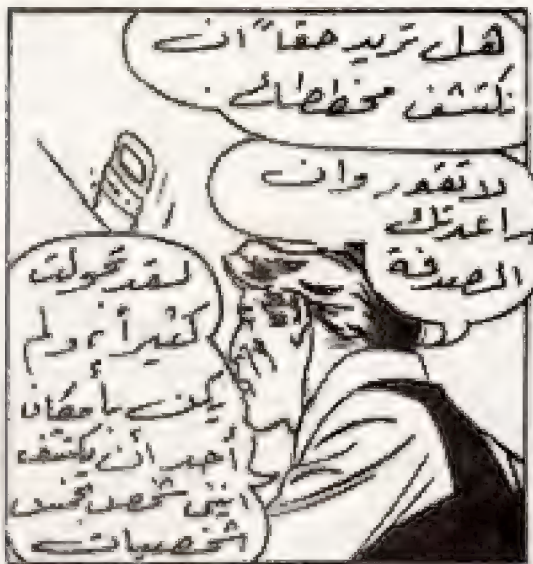 هل تريد حقاً ان
نكتشف مخططاتي
لا تقدر وان
ساعدتك
الصدفة
لقد تحولت
كثيراً، ولم
يكن بأمكان
أحد أن يكتشف
انني شخص بخمس
شخصيات